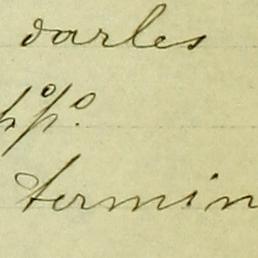 darles
termin